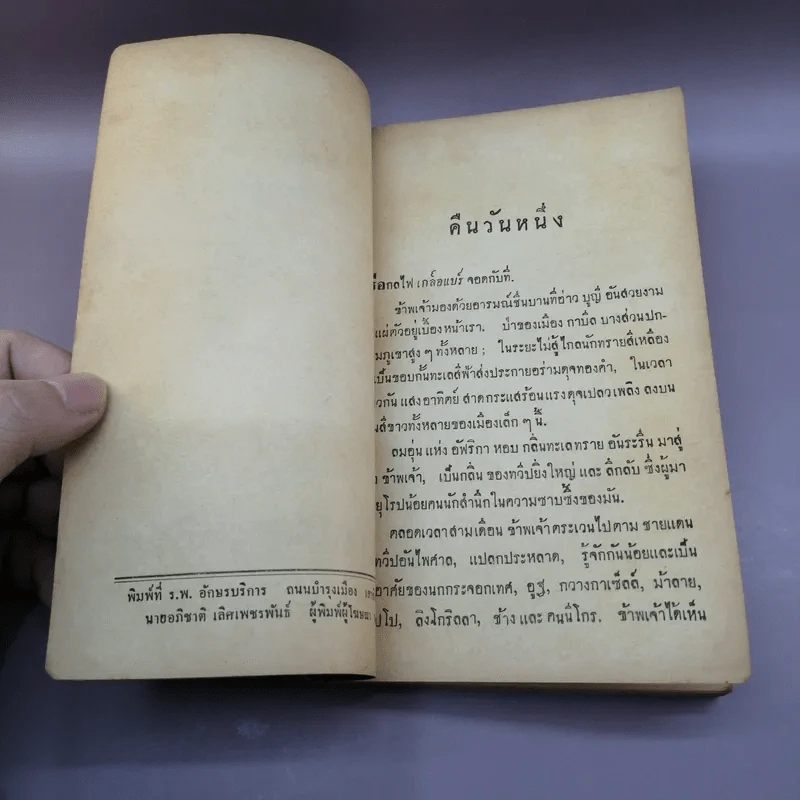 พิมพ์ที่ ร.พ. อักษรบริการ ถนนบำรุงเมือง
นายอภิชาติ เลิศเพชรพันธ์ ผู้พิมพ์ผู้โฆษณา
คืนวันหนึ่ง
เรือกลไฟ เกล็อแบร์ จอดกับที่.
ข้าพเจ้ามองด้วยอารมณ์ชื่นบานที่อ่าว บูญี อันสวยงาม
แผ่ตัวอยู่เบื้องหน้าเรา. ป่าของเมือง กาบิล บางส่วนปก-
ภูเขาสูง ๆ ทั้งหลาย ; ในระยะไม่สู้ไกลนักทรายสีเหลือง
เป็นขอบกั้นทะเลสีฟ้าส่งประกายอร่ามดุจทองคำ, ในเวลา
กัน แสงอาทิตย์ สาดกระแสร้อนแรงดุจเปลวเพลิง ลงบน
สีขาวทั้งหลายของเมืองเล็ก ๆ นี้.
ลมอุ่น แห่ง อัฟริกา หอบ กลิ่นทะเลทราย อันระรื่น มาสู่
ข้าพเจ้า, เป็นกลิ่น ของทวีปยิ่งใหญ่ และ ลึกลับ ซึ่งผู้มา
ยุโรปน้อยคนนักสำนึกในความซาบซึ้งของมัน.
ตลอดเวลาสามเดือน ข้าพเจ้าตระเวนไปตาม ชายแดน
ทวีปอันไพศาล, แปลกประหลาด, รู้จักกันน้อยและเป็น
อาศัยของนกกระจอกเทศ, อูฐ, กวางกาเซ็ลล์, ม้าลาย,
ลิงโกริลลา, ช้าง และ คนนิโกร. ข้าพเจ้าได้เห็น